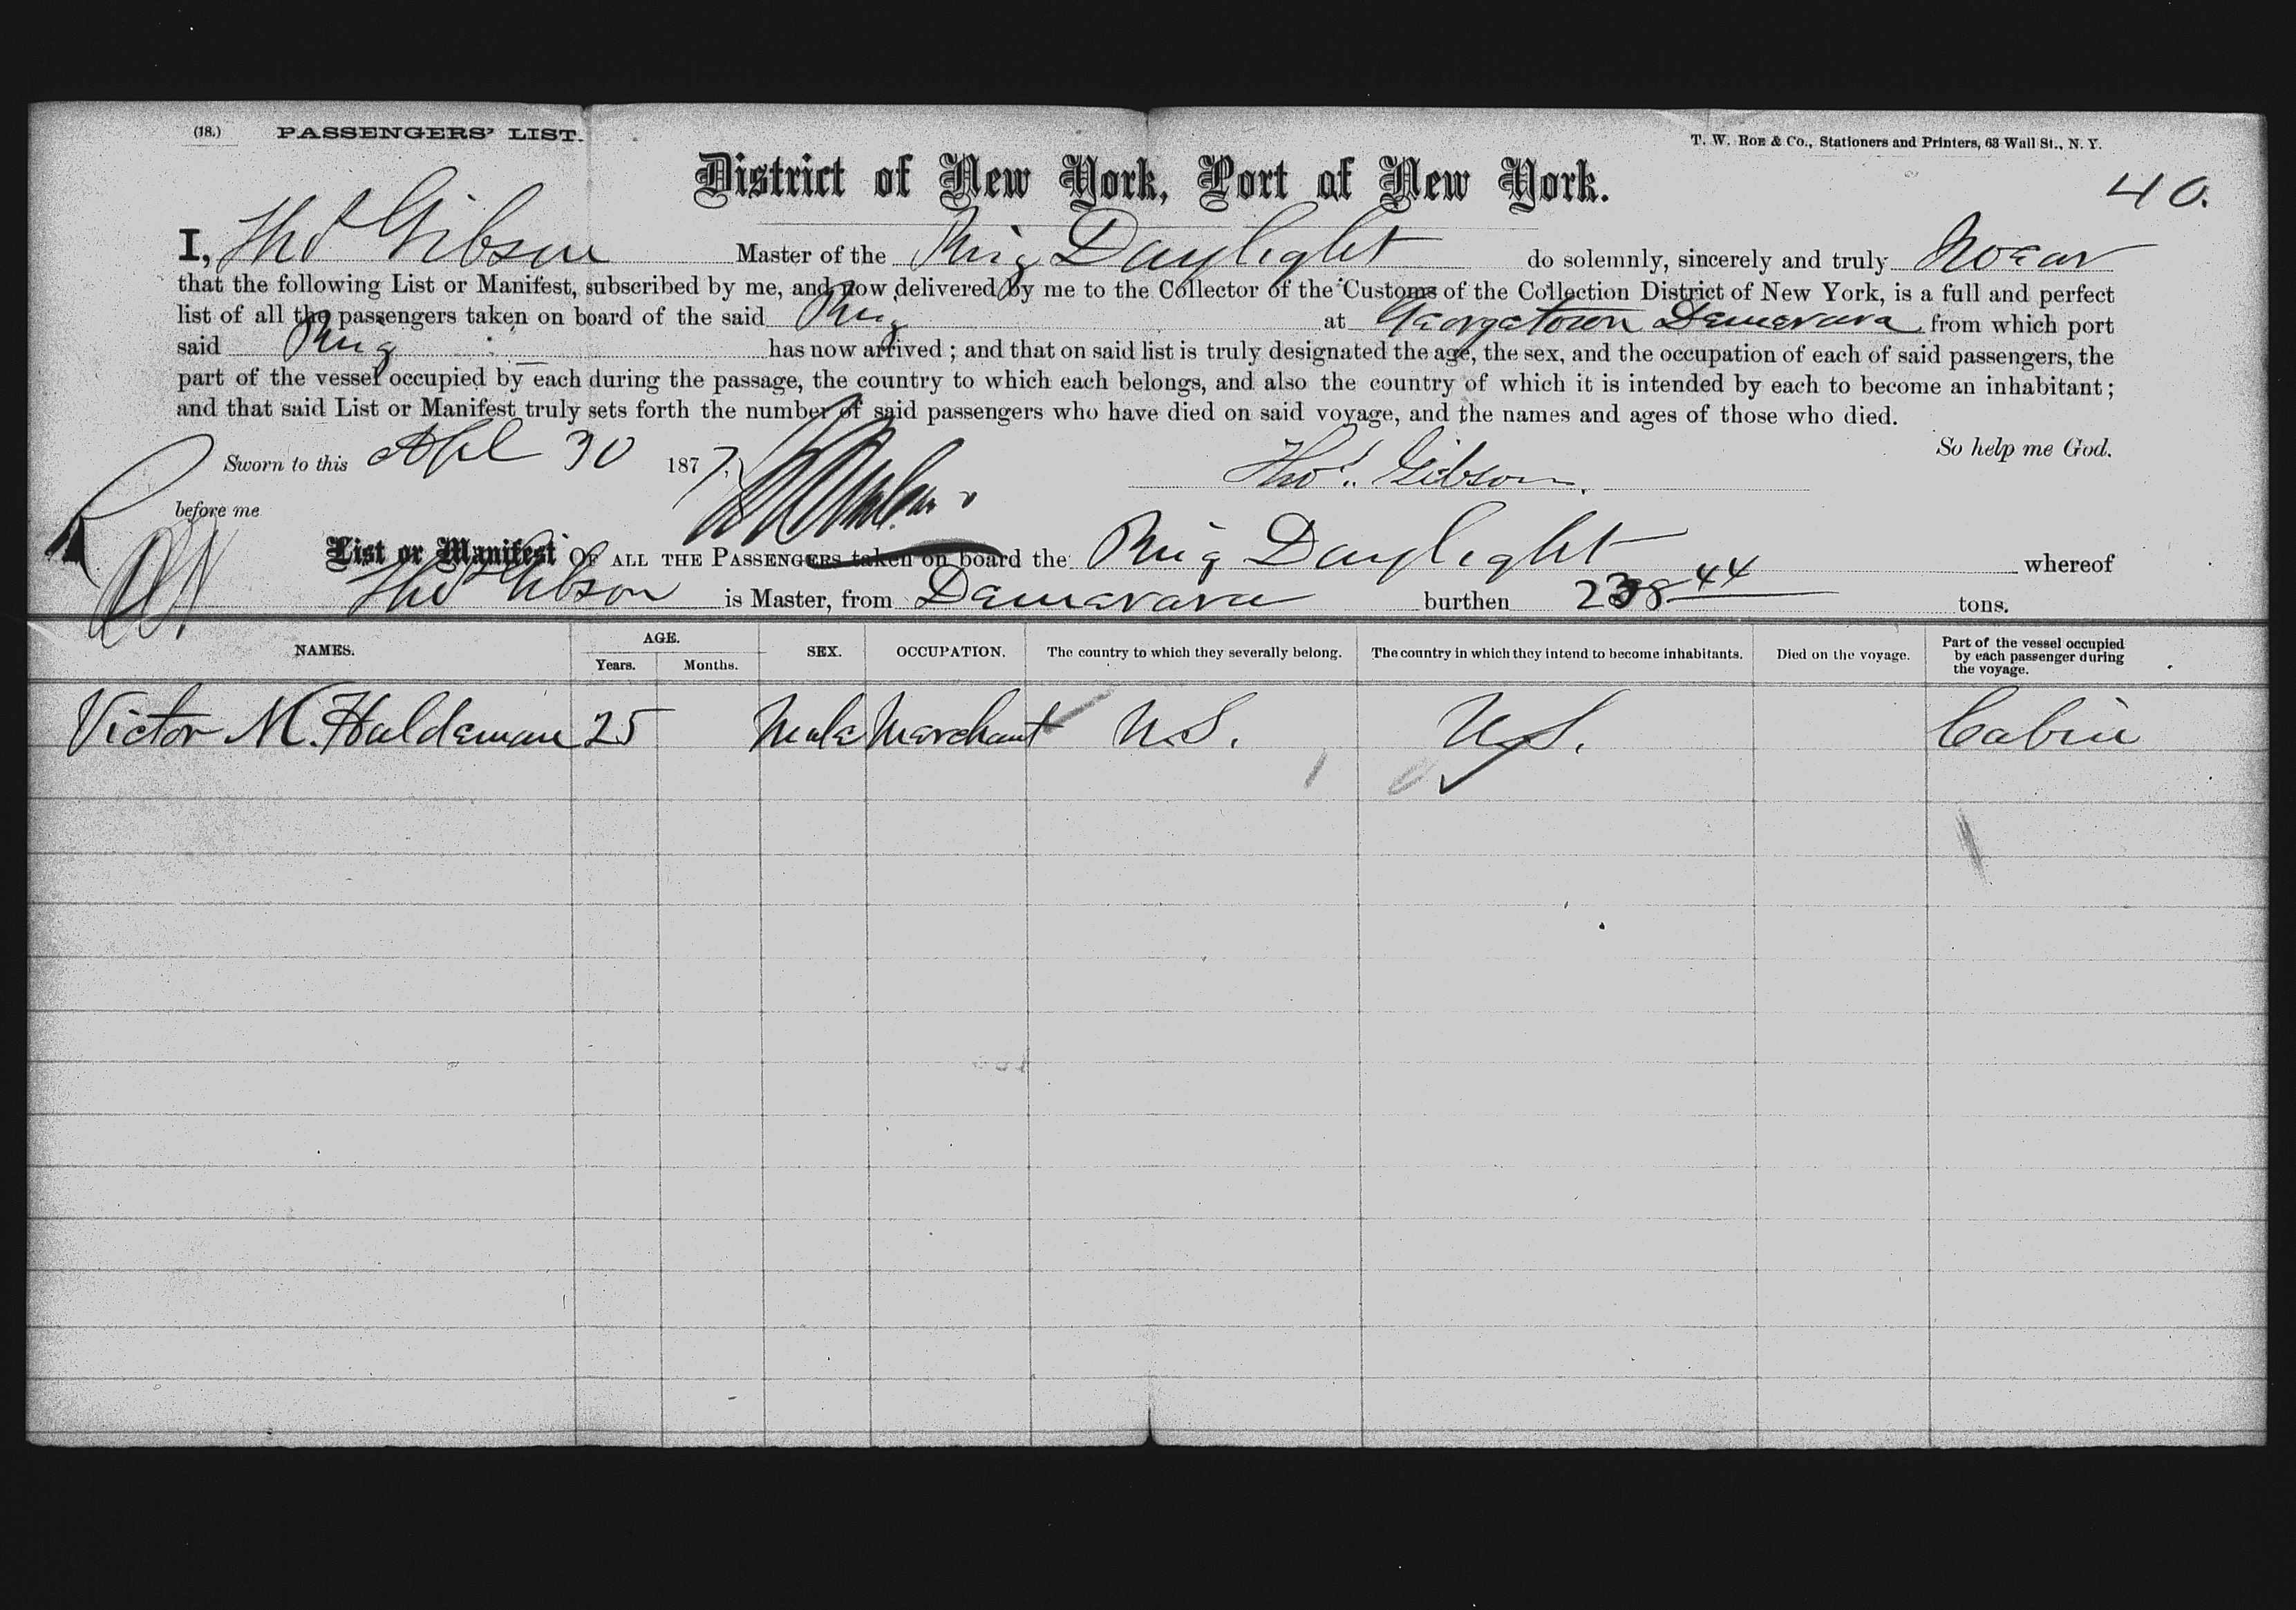 (18.) PASSENGERS' LIST.
T. W. Roe & Co., Stationers and Printers, 63 Wall St., N. Y.
District of New York, Port of New York.
40.
I, Thos Gibson Master of the Brig Daylight do solemnly, sincerely and truly swear
that the following List or Manifest, subscribed by me, and now delivered by me to the Collector of the Customs of the Collection District of New York, is a full and perfect
list of all the passengers taken on board of the said Brig at Georgetown Demerara from which port
said Brig has now arrived ; and that on said list is truly designated the age, the sex, and the occupation of each of said passengers, the
part of the vessel occupied by each during the passage, the country to which each belongs, and also the country of which it is intended by each to become an inhabitant ;
and that said List or Manifest truly sets forth the number of said passengers who have died on said voyage, and the names and ages of those who died.
So help me God.
Sworn to this Apl 30 1877,
Thos. Gibson.
before me
List or Manifest OF ALL THE PASSENGERS taken on board the Brig Daylight whereof
Thos Gibson is Master, from Demerara burthen 238 44 tons.
NAMES. AGE. Years. Months. SEX. OCCUPATION. The country to which they severally belong. The country in which they intend to become inhabitants. Died on the voyage. Part of the vessel occupied by each passenger during the voyage.
Victor M. Haldeman 25 Male Merchant U.S. U.S. Cabin